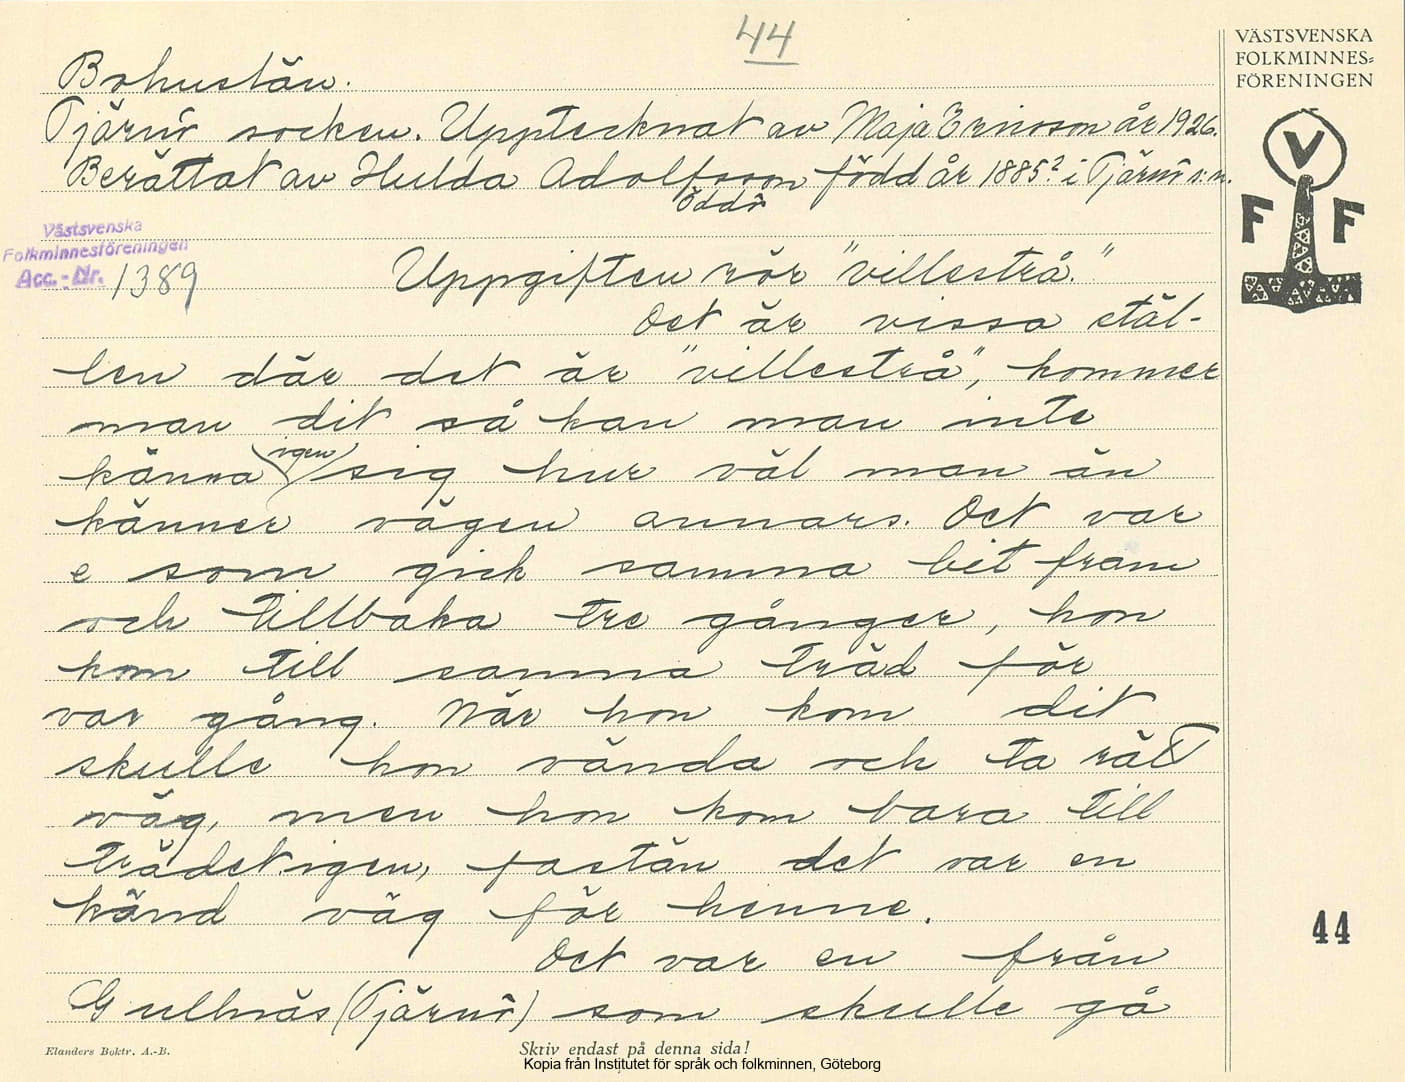 44
VÄSTSVENSKA
FOLKMINNES-
FÖRENINGEN
V
F F
Bohuslän.
Tjärnö socken. Upptecknat av Maja Ericsson år 1926.
Berättat av Hulda Adolfsson född år 1885? i Tjärnö s:n.
Öddö
Västsvenska
Folkminnesföreningen
Acc.-Nr. 1389
Uppgiften rör "villestrå."
Det är vissa stäl-
len där det är "villestrå", kommer
man dit så kan man inte
känna igen sig hur väl man än
känner vägen annars. Det var
e som gick samma bit fram
och tillbaka tre gånger, hon
kom till samma träd för
var gång. När hon kom dit
skulle hon vända och ta rätt
väg, men hon kom bara till
trädet igen, fastän det var en
känd väg för henne.
Det var en från
Gullnäs (Tjärnö) som skulle gå
44
Elanders Boktr. A.-B.
Skriv endast på denna sida!
Kopia från Institutet för språk och folkminnen, Göteborg